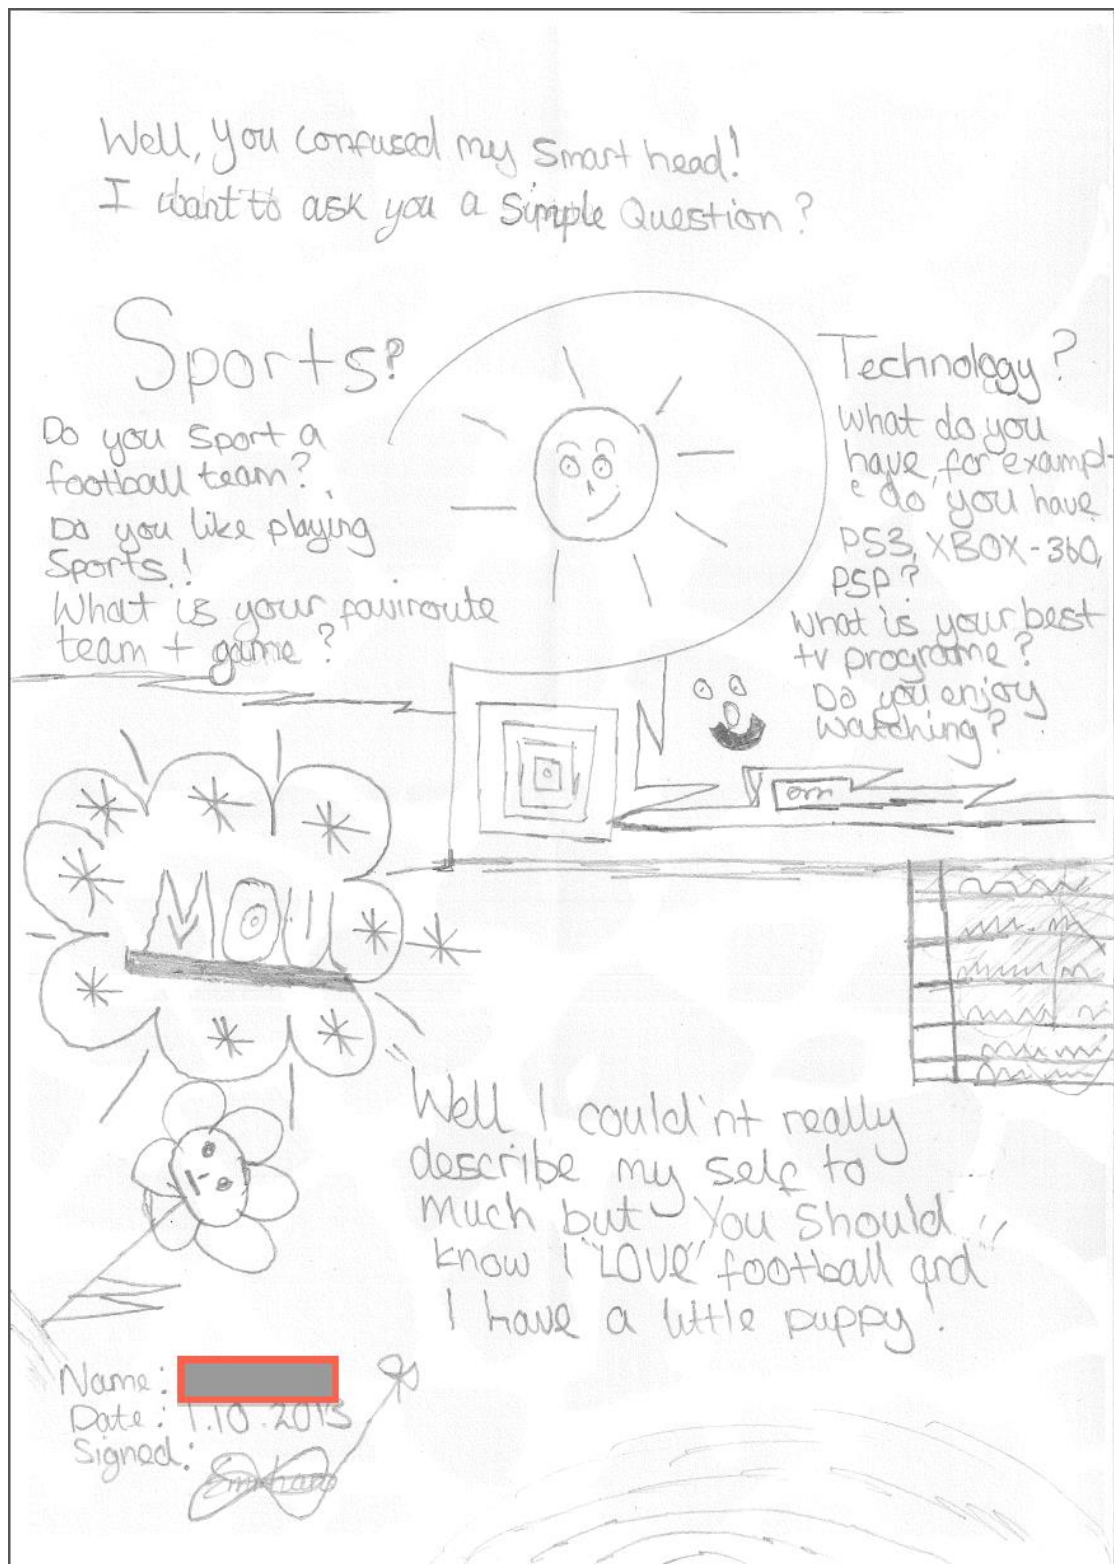 Well, you confused my smart head!
I want to ask you a Simple Question?
Sports?
Do you sport a
football team?
Do you like playing
Sports!
What is your faviroute
team + game?
Technology?
What do you
have, for exampl-
e do you have
PS3, XBOX-360,
PSP?
What is your best
tv programe?
Do you enjoy
watching?
Well I could'nt really
describe my self to
much but You Should
know I "LOVE" football and
I have a little puppy!
Name:
Date: 1.10.2013
Signed: